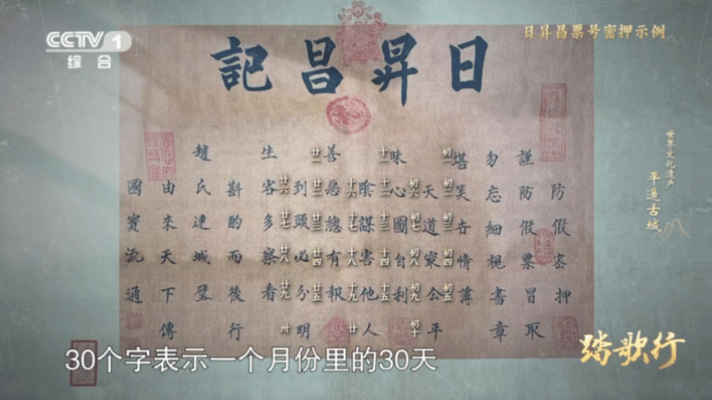 CCTV 1
综合
日昇昌票号密押示例
日昇昌記
防假密押
謹防假票冒取
勿忘細視書章
堪笑世情薄
初一 初二 初三 初四 初五
天道最公平
昧心圖自利
陰謀害他人
善惡總有報
到頭必分明
生客多察看
斟酌而後行
趙氏連城璧
由來天下傳
國寶流通
世界文化遗产
平遥古城
30个字表示一个月份里的30天
踏歌行